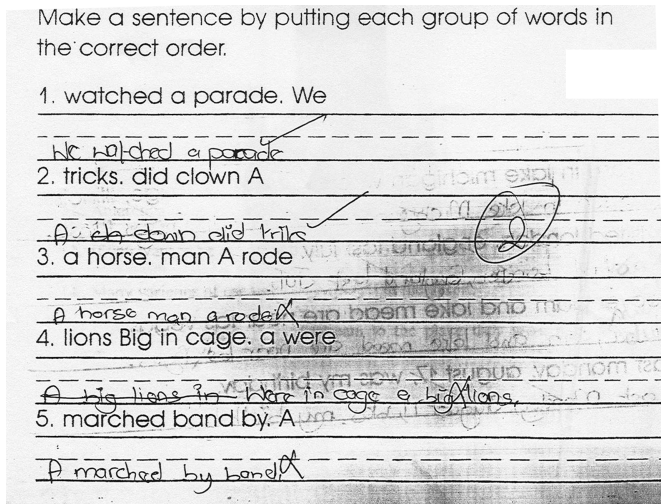 Make a sentence by putting each group of words in
the correct order.
1. watched a parade. We
We watched a parade
2. tricks. did clown A
A clown did triks
3. a horse. man A rode
2
A horse man a rode
4. lions Big in cage. a were
A big lions in Were in cage a big lions.
5. marched band by. A
A marched by band